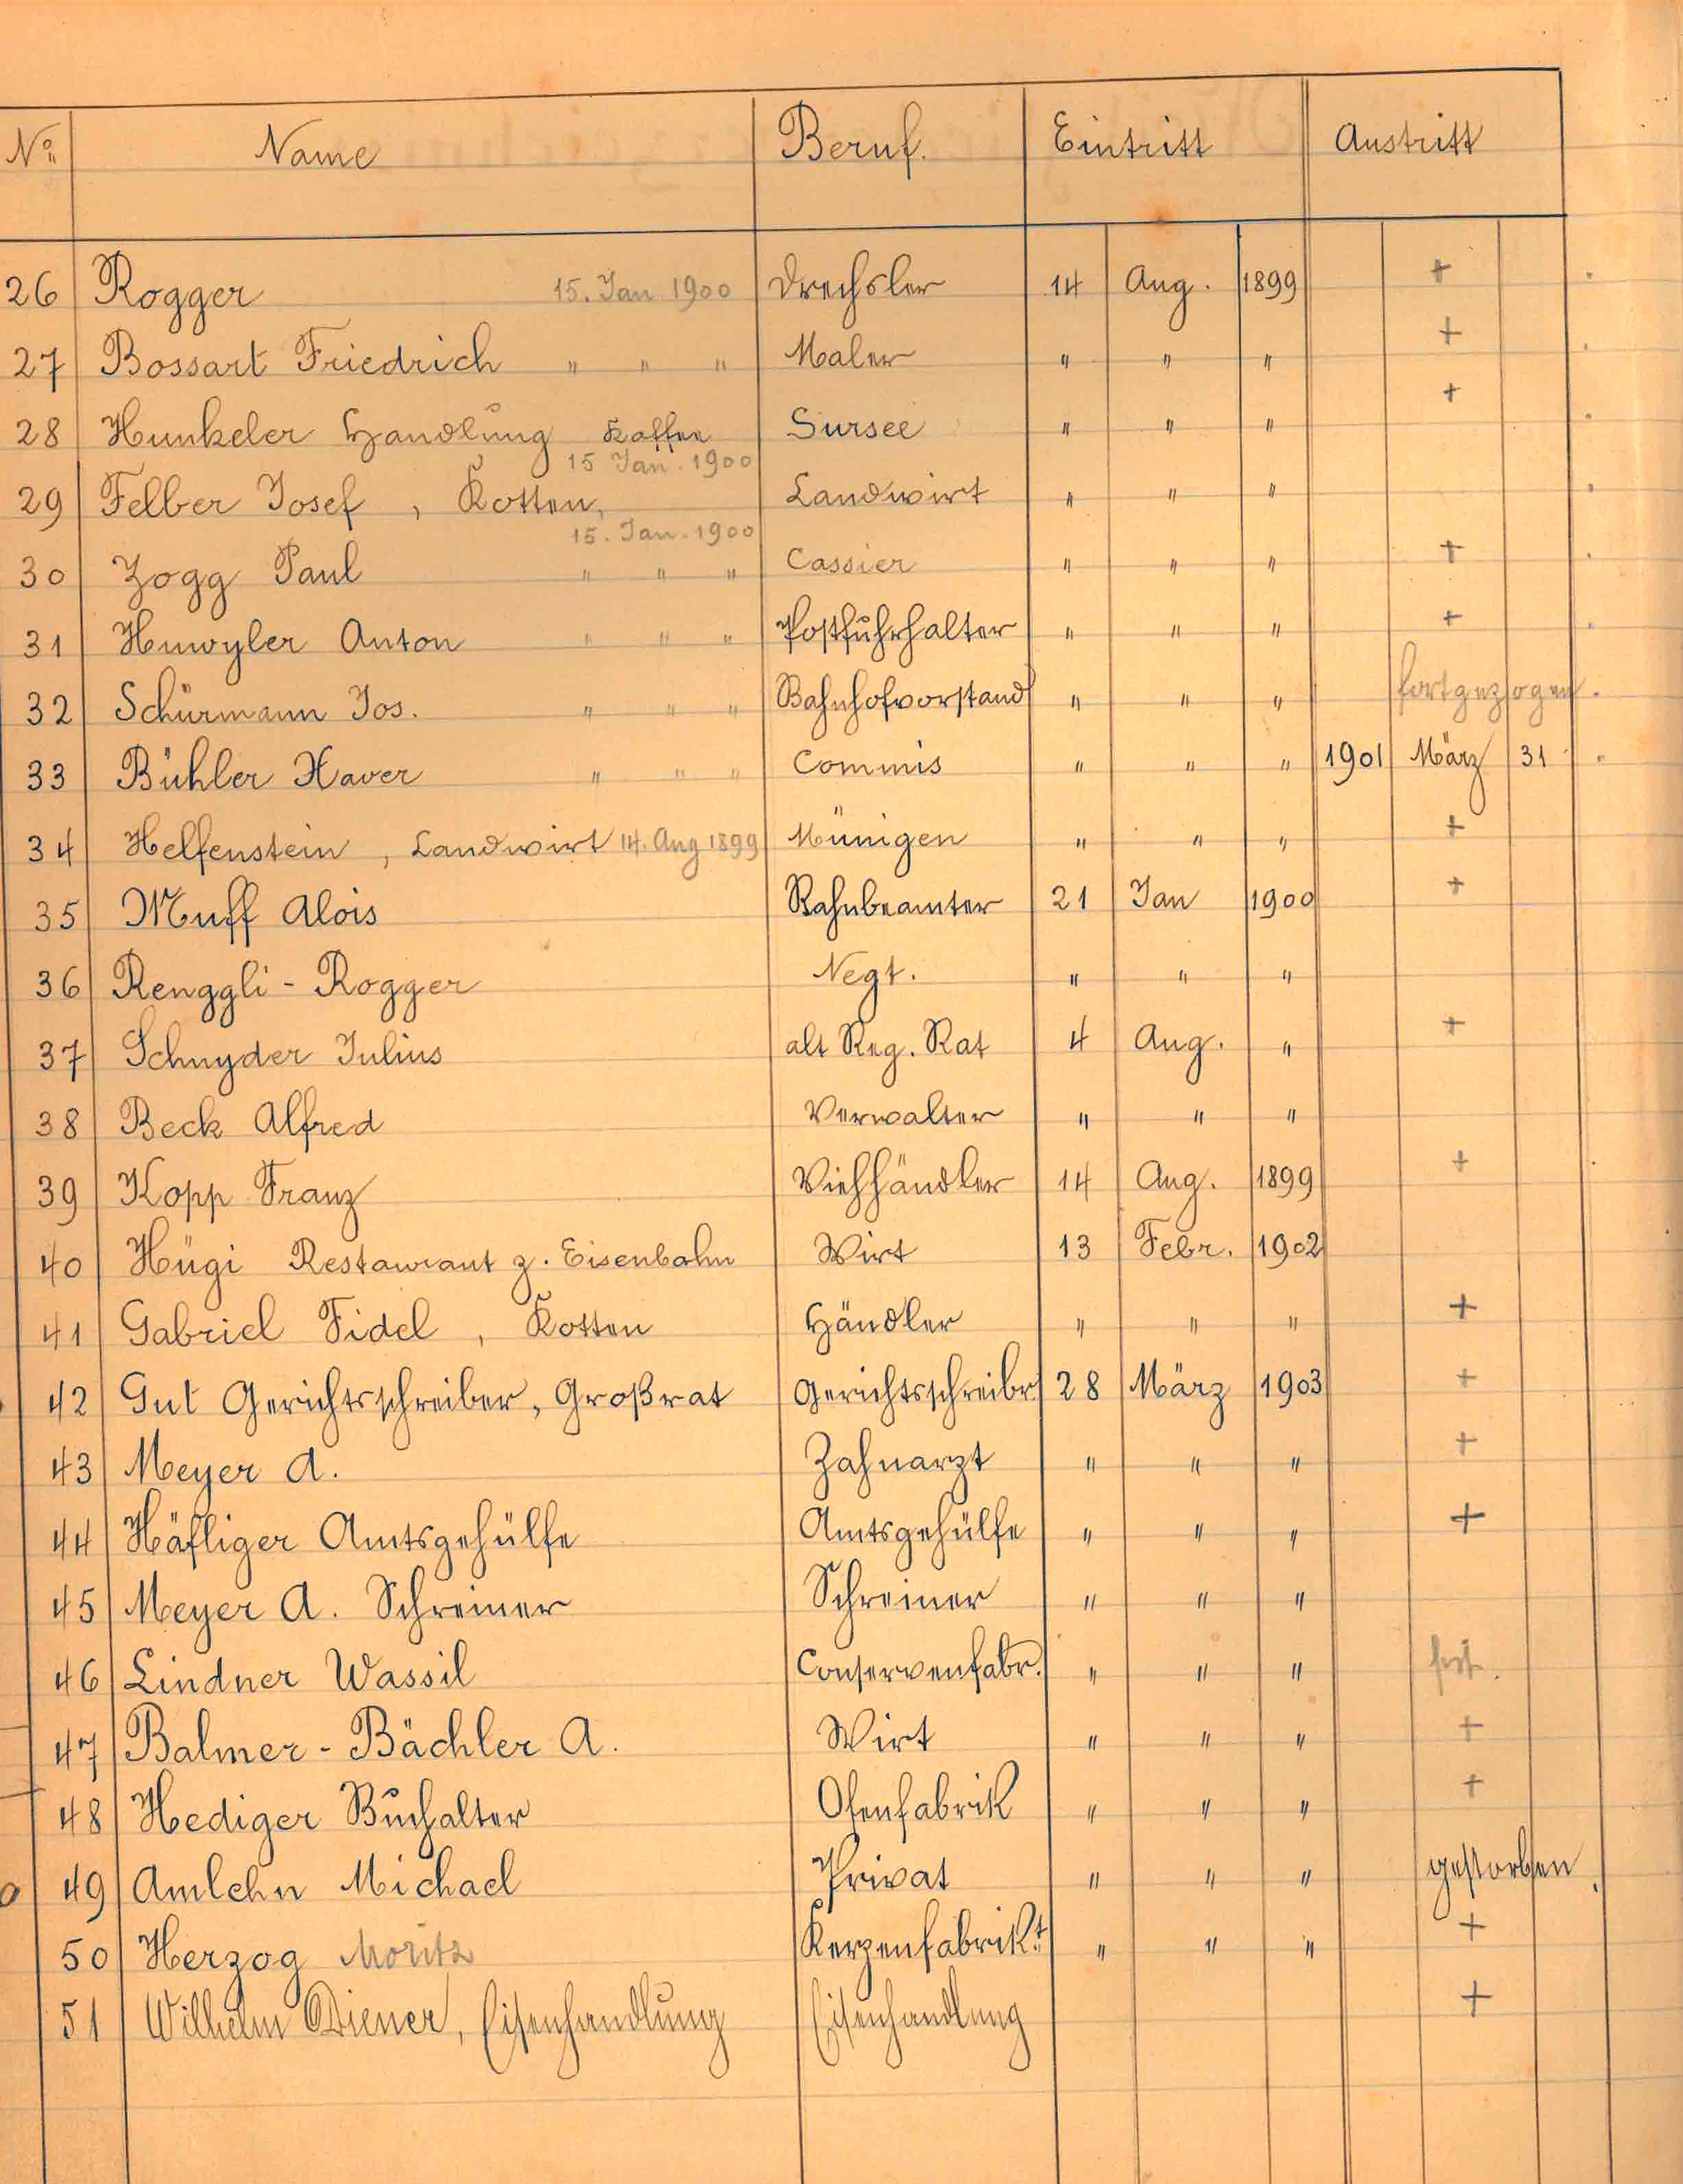 No Name Beruf. Eintritt Austritt
26 Rogger 15. Jan 1900 Drechsler 14 Aug. 1899 +
27 Bossart Friedrich " " " Maler " " " +
28 Hunkeler Handlung Kaffee Sursee " " " +
15 Jan. 1900
29 Felber Josef, Kotten, Landwirt " " "
15. Jan. 1900
30 Zogg Paul " " " Cassier " " " +
31 Huwyler Anton " " " Postfuhrhalter " " " +
32 Schürmann Jos. " " " Bahnhofvorstand " " " fortgezogen.
33 Bühler Xaver " " " Commis " " " 1901 März 31
34 Helfenstein, Landwirt 14. Aug 1899 Münigen " " " +
35 Muff Alois Bahnbeamter 21 Jan 1900 +
36 Renggli-Rogger Negt. " " "
37 Schnyder Julius alt Reg. Rat 4 Aug. " +
38 Beck Alfred Verwalter " " "
39 Kopp Franz Viehhändler 14 Aug. 1899 +
40 Hügi Restaurant z. Eisenbahn Wirt 13 Febr. 1902
41 Gabriel Fidel, Kotten Händler " " " +
42 Gut Gerichtsschreiber, Großrat Gerichtsschreibr 28 März 1903 +
43 Meyer A. Zahnarzt " " " +
44 Häfliger Amtsgehülfe Amtsgehülfe " " " +
45 Meyer A. Schreiner Schreiner " " "
46 Lindner Wassil Conservenfabr. " " "
47 Balmer-Bächler A. Wirt " " " +
48 Hediger Buchalter Ofenfabrik " " " +
49 Amlehn Michael Privat " " " gestorben.
50 Herzog Moritz Kerzenfabrikt. " " " +
51 Wilhelm Diener, Eisenhandlung Eisenhandlung +